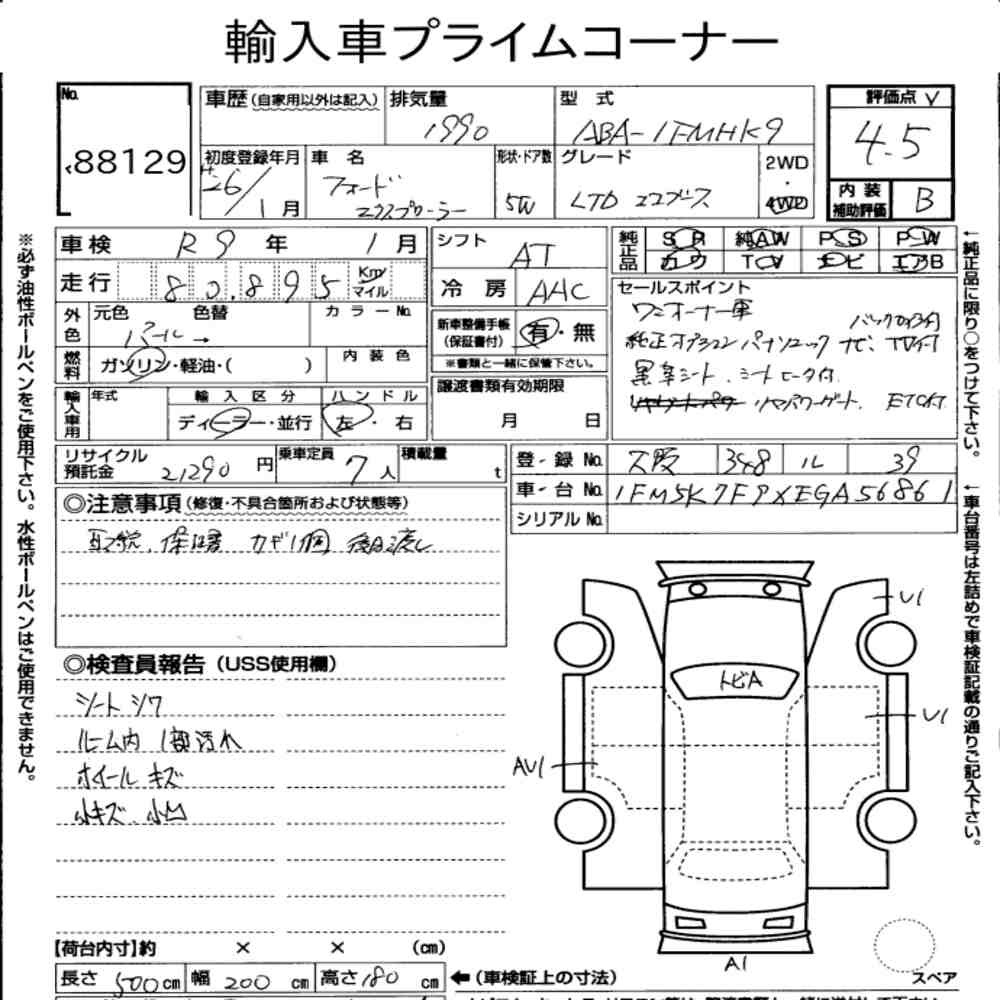 輸入車プライムコーナー
No.
88129
車歴(自家用以外は記入) 排気量 型 式 評価点
1990 ABA-1FMHK9 4.5
初度登録年月 車 名 形状・ドア数 グレード 2WD・4WD
H26/1月 フォード エクスプローラー 5W LTD エコブースト
内装補助評価 B
車検 R9年 1月 シフト AT 純正品 SR 純AW PS PW
走行 80,895 Km マイル 冷房 AAC カワ TV ナビ エアB
外色 元色 色替 カラーNo. 新車整備手帳(保証書付) 有・無
パール →
※書類と一緒に保管下さい。
燃料 ガソリン・軽油・( ) 内装色 譲渡書類有効期限
月 日
輸入車用 年式 輸入区分 ハンドル
ディーラー・並行 左・右
セールスポイント
ワンオーナー車
バックカメラ付
純正オプション パナソニック ナビ、TV付
黒革シート、シートヒータ付
リヤパワーゲート、ETC付
リサイクル預託金 21290円 乗車定員 7人 積載量 t
登・録No. 大阪 348 ル 39
車・台No. 1FM5K7F9XEGA56861
シリアルNo.
◎注意事項(修復・不具合箇所および状態等)
取説、保証書 カギ1個 後日渡し
◎検査員報告(USS使用欄)
シートシワ
ルーム内 1部汚れ
ホイールキズ
小キズ、小凹
U1
トビA
U1
AU1
A1
スペア
【荷台内寸】約 × × (cm)
長さ 500cm 幅 200cm 高さ 180cm ←(車検証上の寸法)
※必ず油性ボールペンをご使用下さい。水性ボールペンはご使用できません。
←純正品に限り○をつけて下さい。
←車台番号は左詰めで車検証記載の通りご記入下さい。